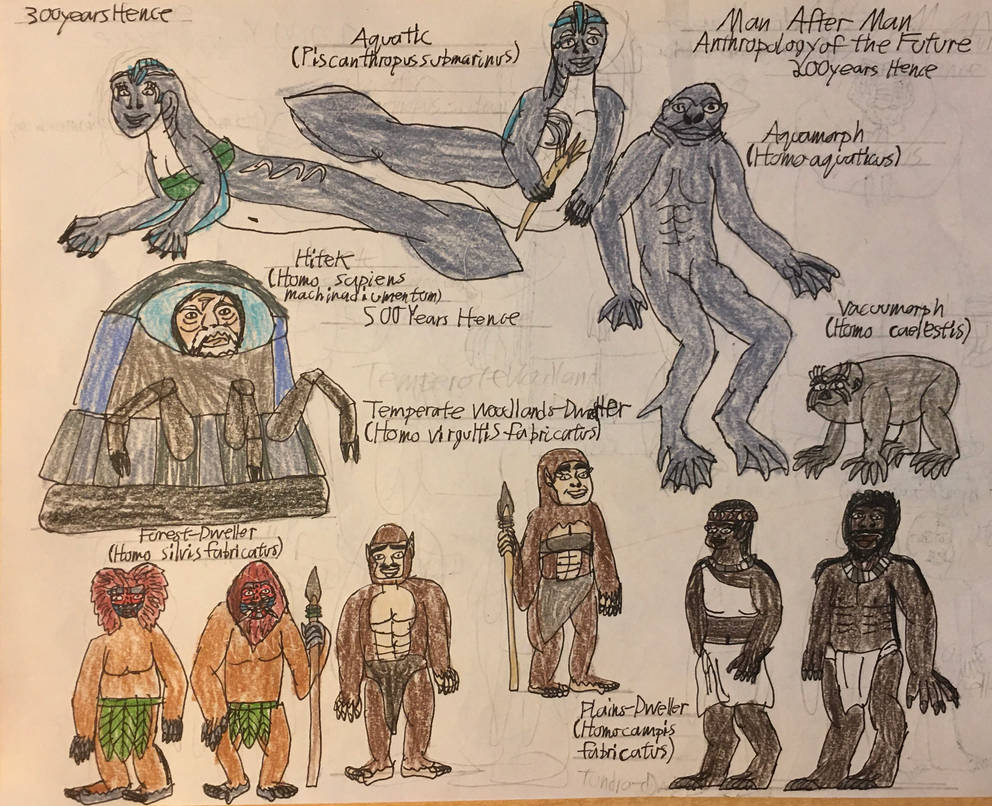 300 years Hence
Aquatic
(Piscanthropus submarinus)
Man After Man
Anthropology of the Future
200 years Hence
Aquamorph
(Homo aquaticus)
Hitek
(Homo sapiens
machinadiumentum)
500 Years Hence
Vacuumorph
(Homo caelestis)
Temperate Woodlands-Dweller
(Homo virgultis fabricatus)
Forest-Dweller
(Homo silvis fabricatus)
Plains-Dweller
(Homo campis
fabricatus)